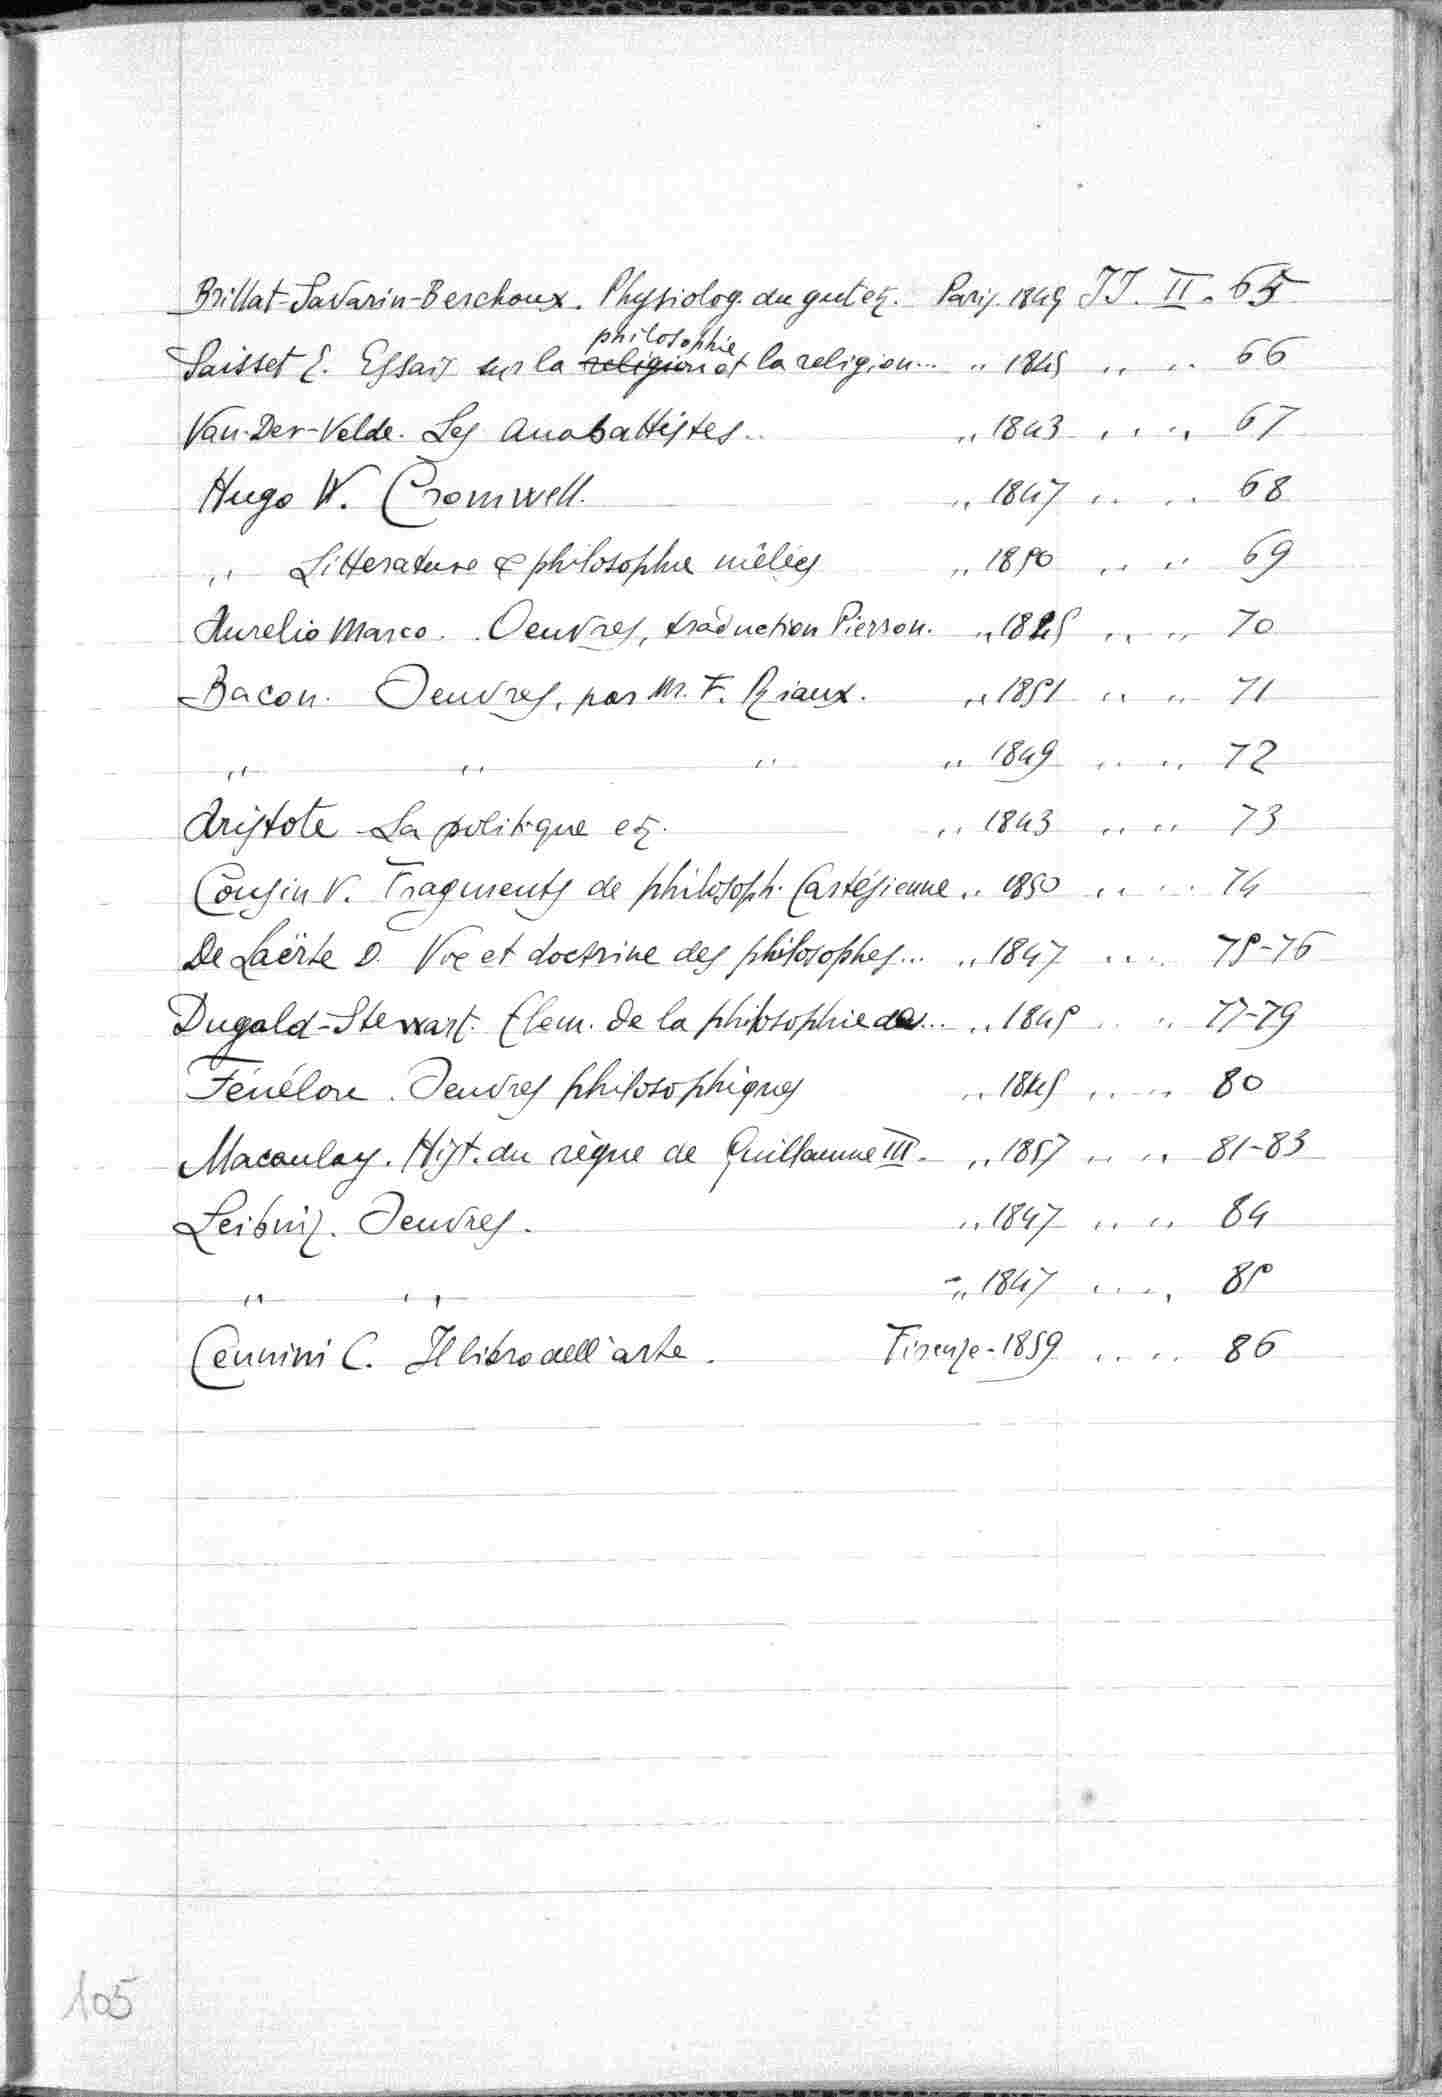 Brillat-Savarin-Berchoux. Physiolog. du gut etc. Paris. 1849 JJ. II. 65
philosophie
Saisset E. Essais sur la religion et la religion... „ 1845 „ „ 66
Van-Der-Velde. Les Anabattistes.. „ 1843 „ „ 67
Hugo V. Cromwell. „ 1847 „ „ 68
„ Litterature & philosophie mêlées „ 1850 „ „ 69
Aurelio Marco. Oeuvres, traduction Pierron. „ 1845 „ „ 70
Bacon. Oeuvres, par Mr. F. Riaux. „ 1851 „ „ 71
„ „ „ „ 1849 „ „ 72
Aristote - La politique etc. „ 1843 „ „ 73
Cousin V. Fragments de philosoph. Cartésienne „ 1850 „ „ 74
De Laërte D. Vie et doctrine des philosophes... „ 1847 „ „ 75-76
Dugald-Stewart. Elem. de la philosophie de... „ 1845 „ „ 77-79
Fénélon. Oeuvres philosophiques „ 1845 „ „ 80
Macaulay. Hist. du règne de Guillaume III. „ 1857 „ „ 81-83
Leibniz. Oeuvres. „ 1847 „ „ 84
„ „ „ 1847 „ „ 85
Cennini C. Il libro dell'arte. Firenze - 1859 „ „ 86
105